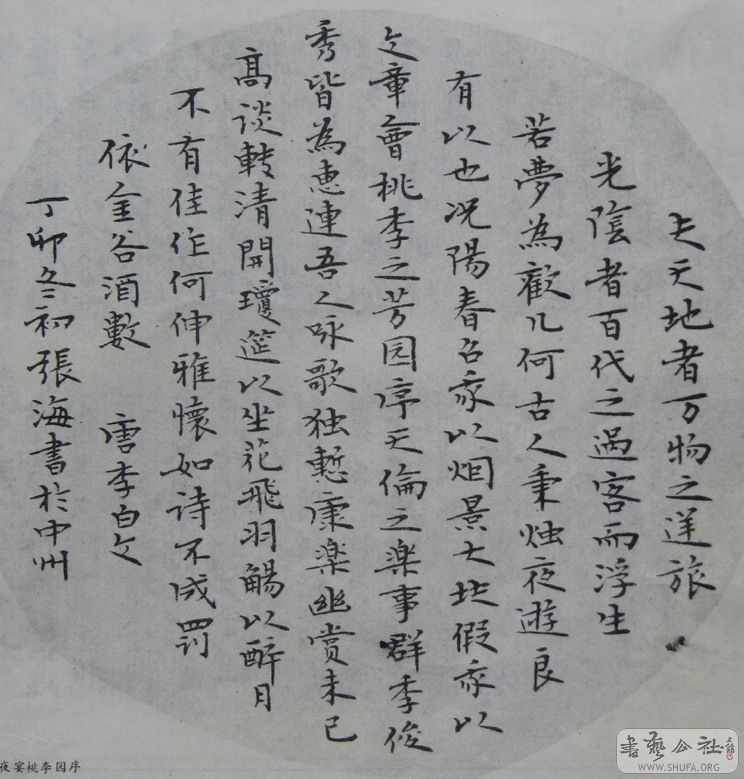 夫天地者万物之逆旅
光陰者百代之過客而浮生
若夢為歡几何古人秉烛夜遊良
有以也况陽春召我以烟景大块假我以
文章會桃李之芳园序天倫之楽事群季俊
秀皆為恵連吾人咏歌独慙康楽幽赏未已
高谈转清開瓊筵以坐花飛羽觴以醉月
不有佳作何伸雅懷如诗不成罰
依金谷酒數 唐李白文
丁卯冬初張海書於中州
夜宴桃李园序
書藝公社
WWW.SHUFA.ORG